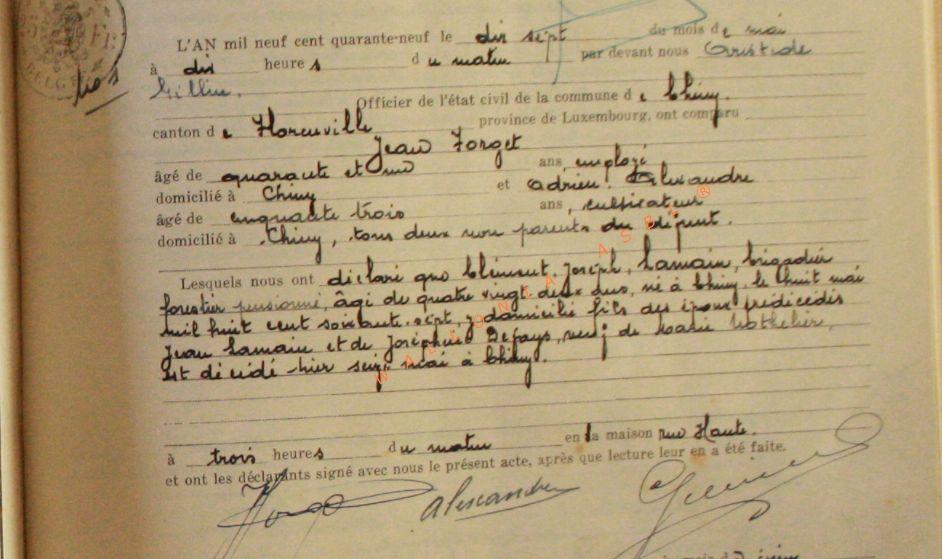 L'AN mil neuf cent quarante-neuf le dix sept du mois de mai
à dix heures du matin par devant nous Aristide
Gillin.
Officier de l'état civil de la commune de Chiny.
canton de Florenville province de Luxembourg, ont comparu
Jean Forget
âgé de quarante et un ans employé
domicilié à Chiny et Adrien Alexandre
âgé de cinquante trois ans, cultivateur
domicilié à Chiny, tous deux non parents du défunt.
Lesquels nous ont déclaré que Clément Joseph, Lamain, brigadier
forestier pensionné, âgé de quatre vingt deux ans, né à Chiny le huit mai
mil huit cent soixante-sept y domicilié fils des époux prédécédés
Jean Lamain et de Joséphine Defays, veuf de Marie Nothelier,
est décédé hier seize mai à Chiny.
à trois heures du matin en la maison rue Haute.
et ont les déclarants signé avec nous le présent acte, après que lecture leur en a été faite.
Alexandre